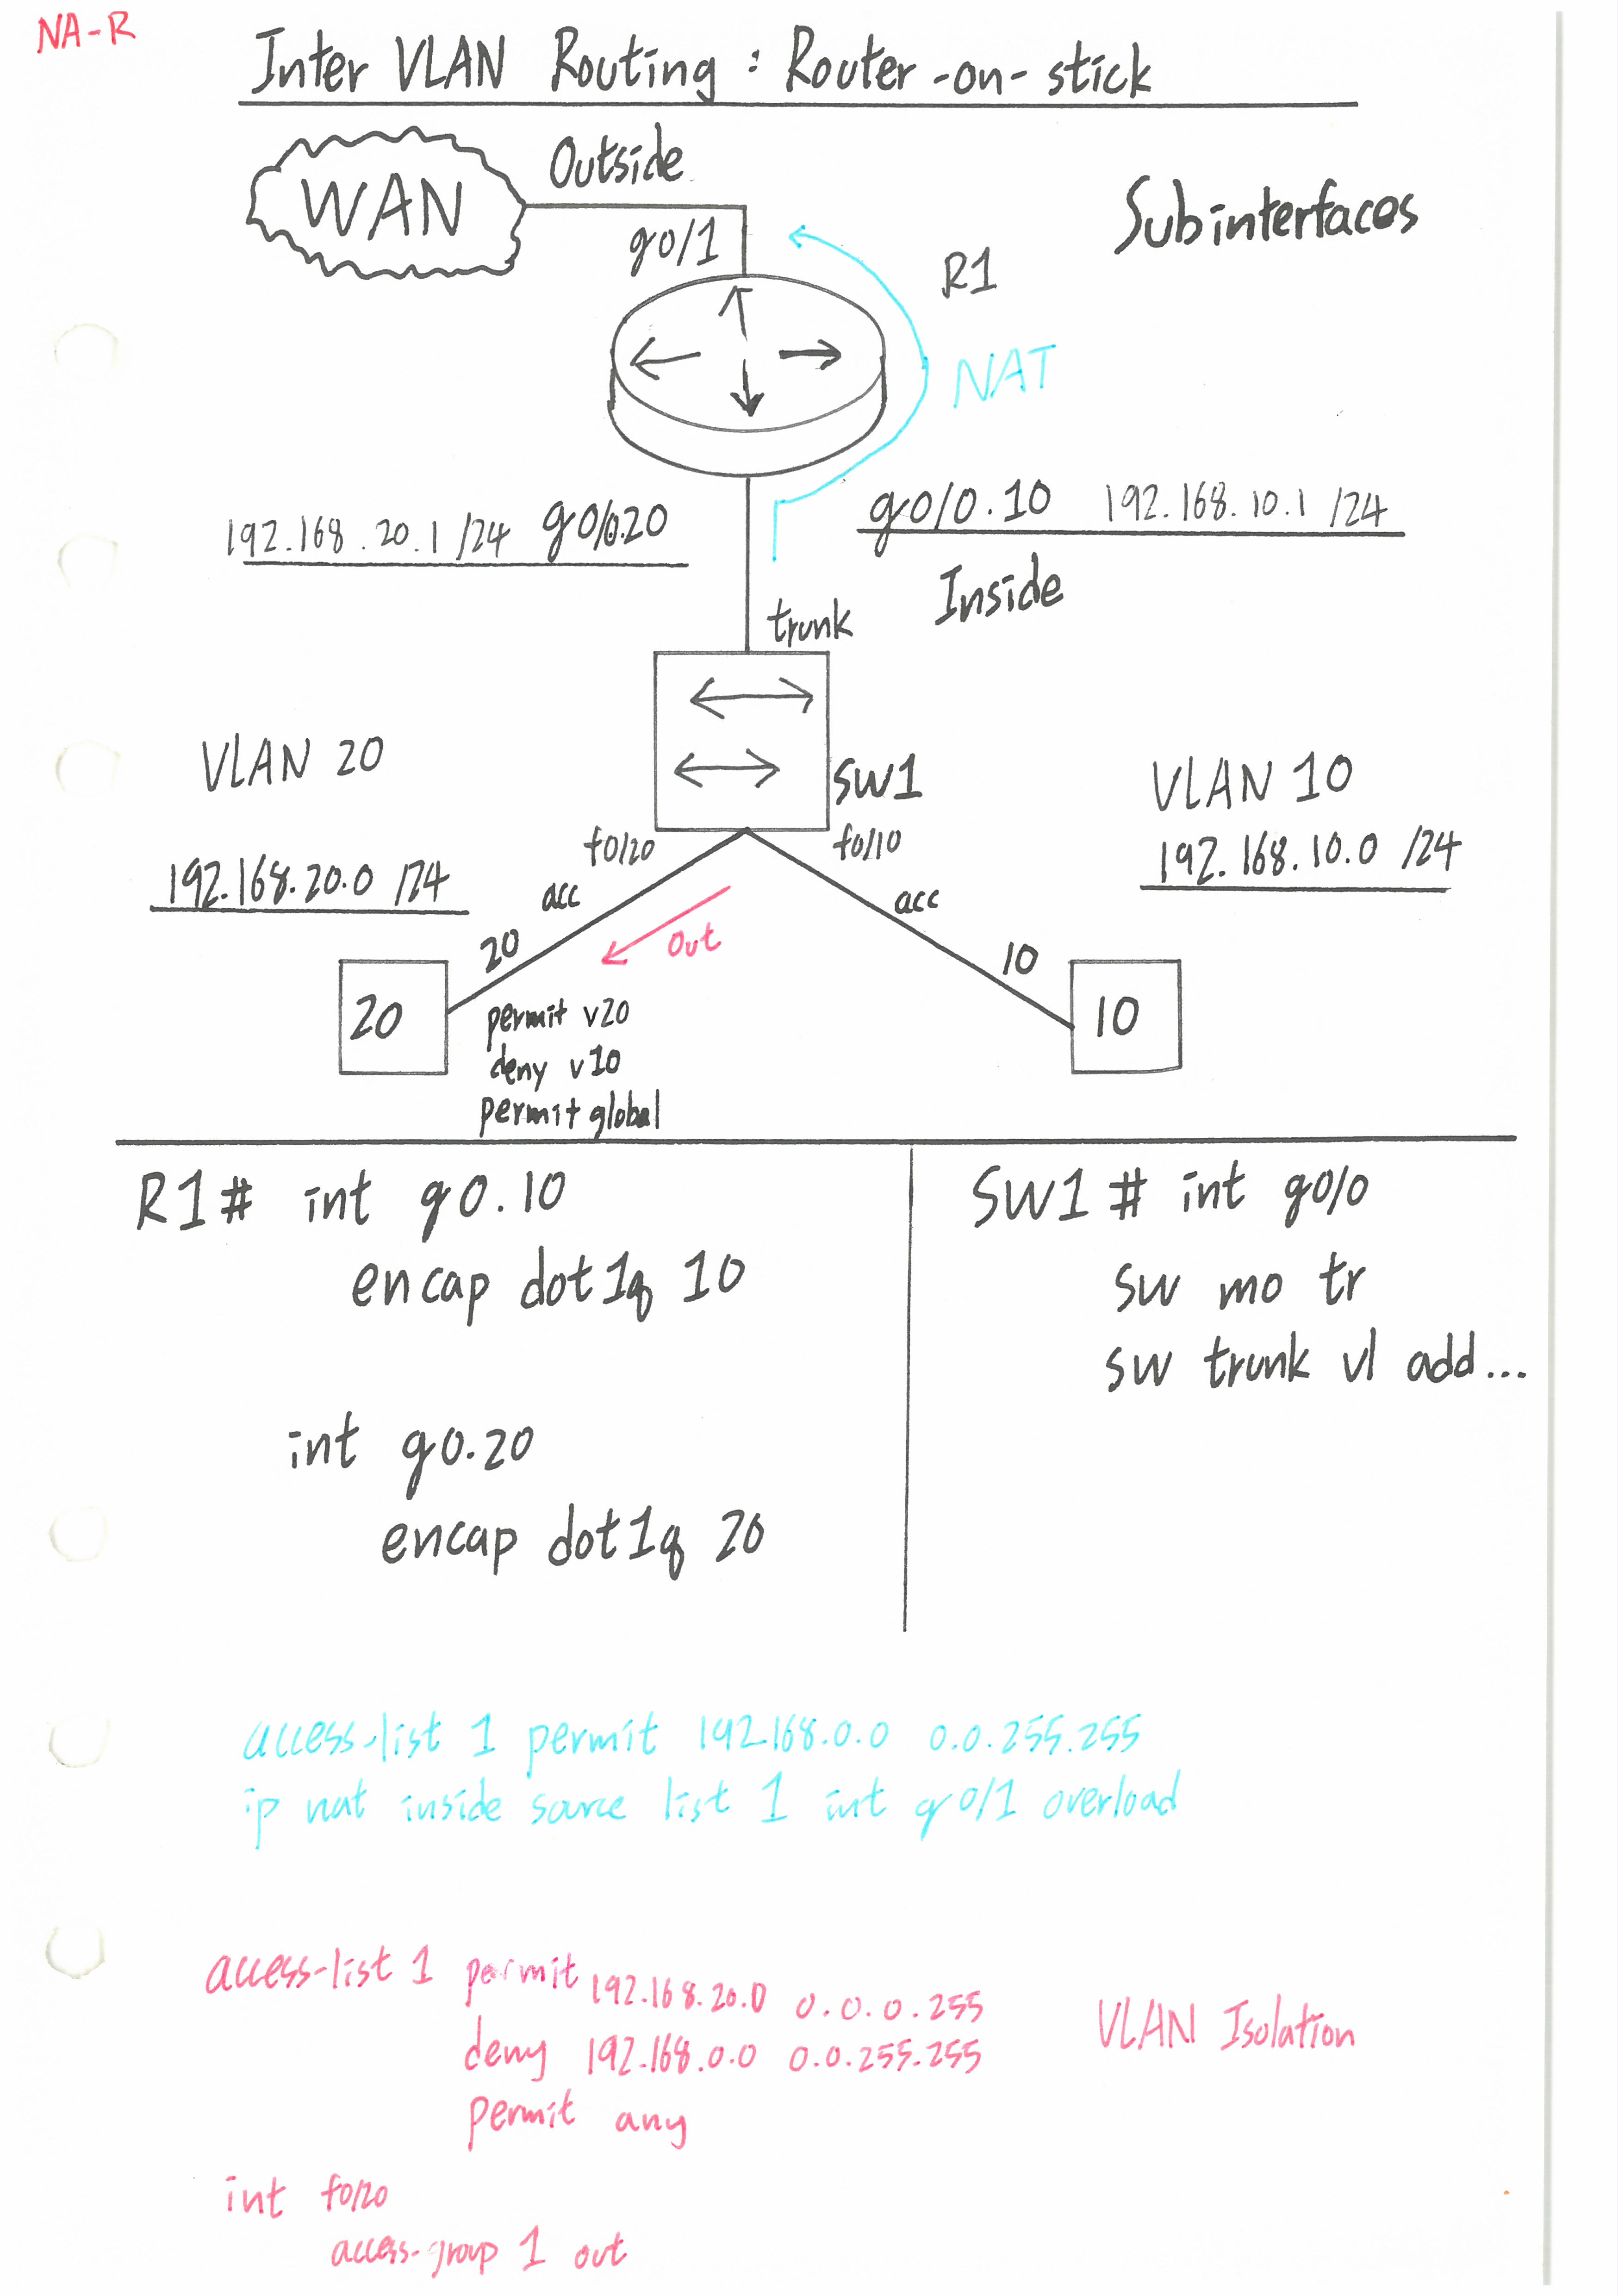 NA-R
Inter VLAN Routing : Router-on-stick
WAN
Outside
g0/1
Subinterfaces
R1
NAT
192.168.20.1 /24 g0/0.20
g0/0.10 192.168.10.1 /24
Inside
trunk
VLAN 20
SW1
VLAN 10
f0/20
f0/10
192.168.20.0 /24
192.168.10.0 /24
acc
acc
out
20
10
20
10
permit v20
deny v10
permit global
R1# int g0.10
encap dot1q 10
int g0.20
encap dot1q 20
SW1 # int g0/0
sw mo tr
sw trunk vl add...
access-list 1 permit 192.168.0.0 0.0.255.255
ip nat inside source list 1 int g0/1 overload
access-list 1 permit 192.168.20.0 0.0.0.255
deny 192.168.0.0 0.0.255.255
permit any
VLAN Isolation
int f0/20
access-group 1 out